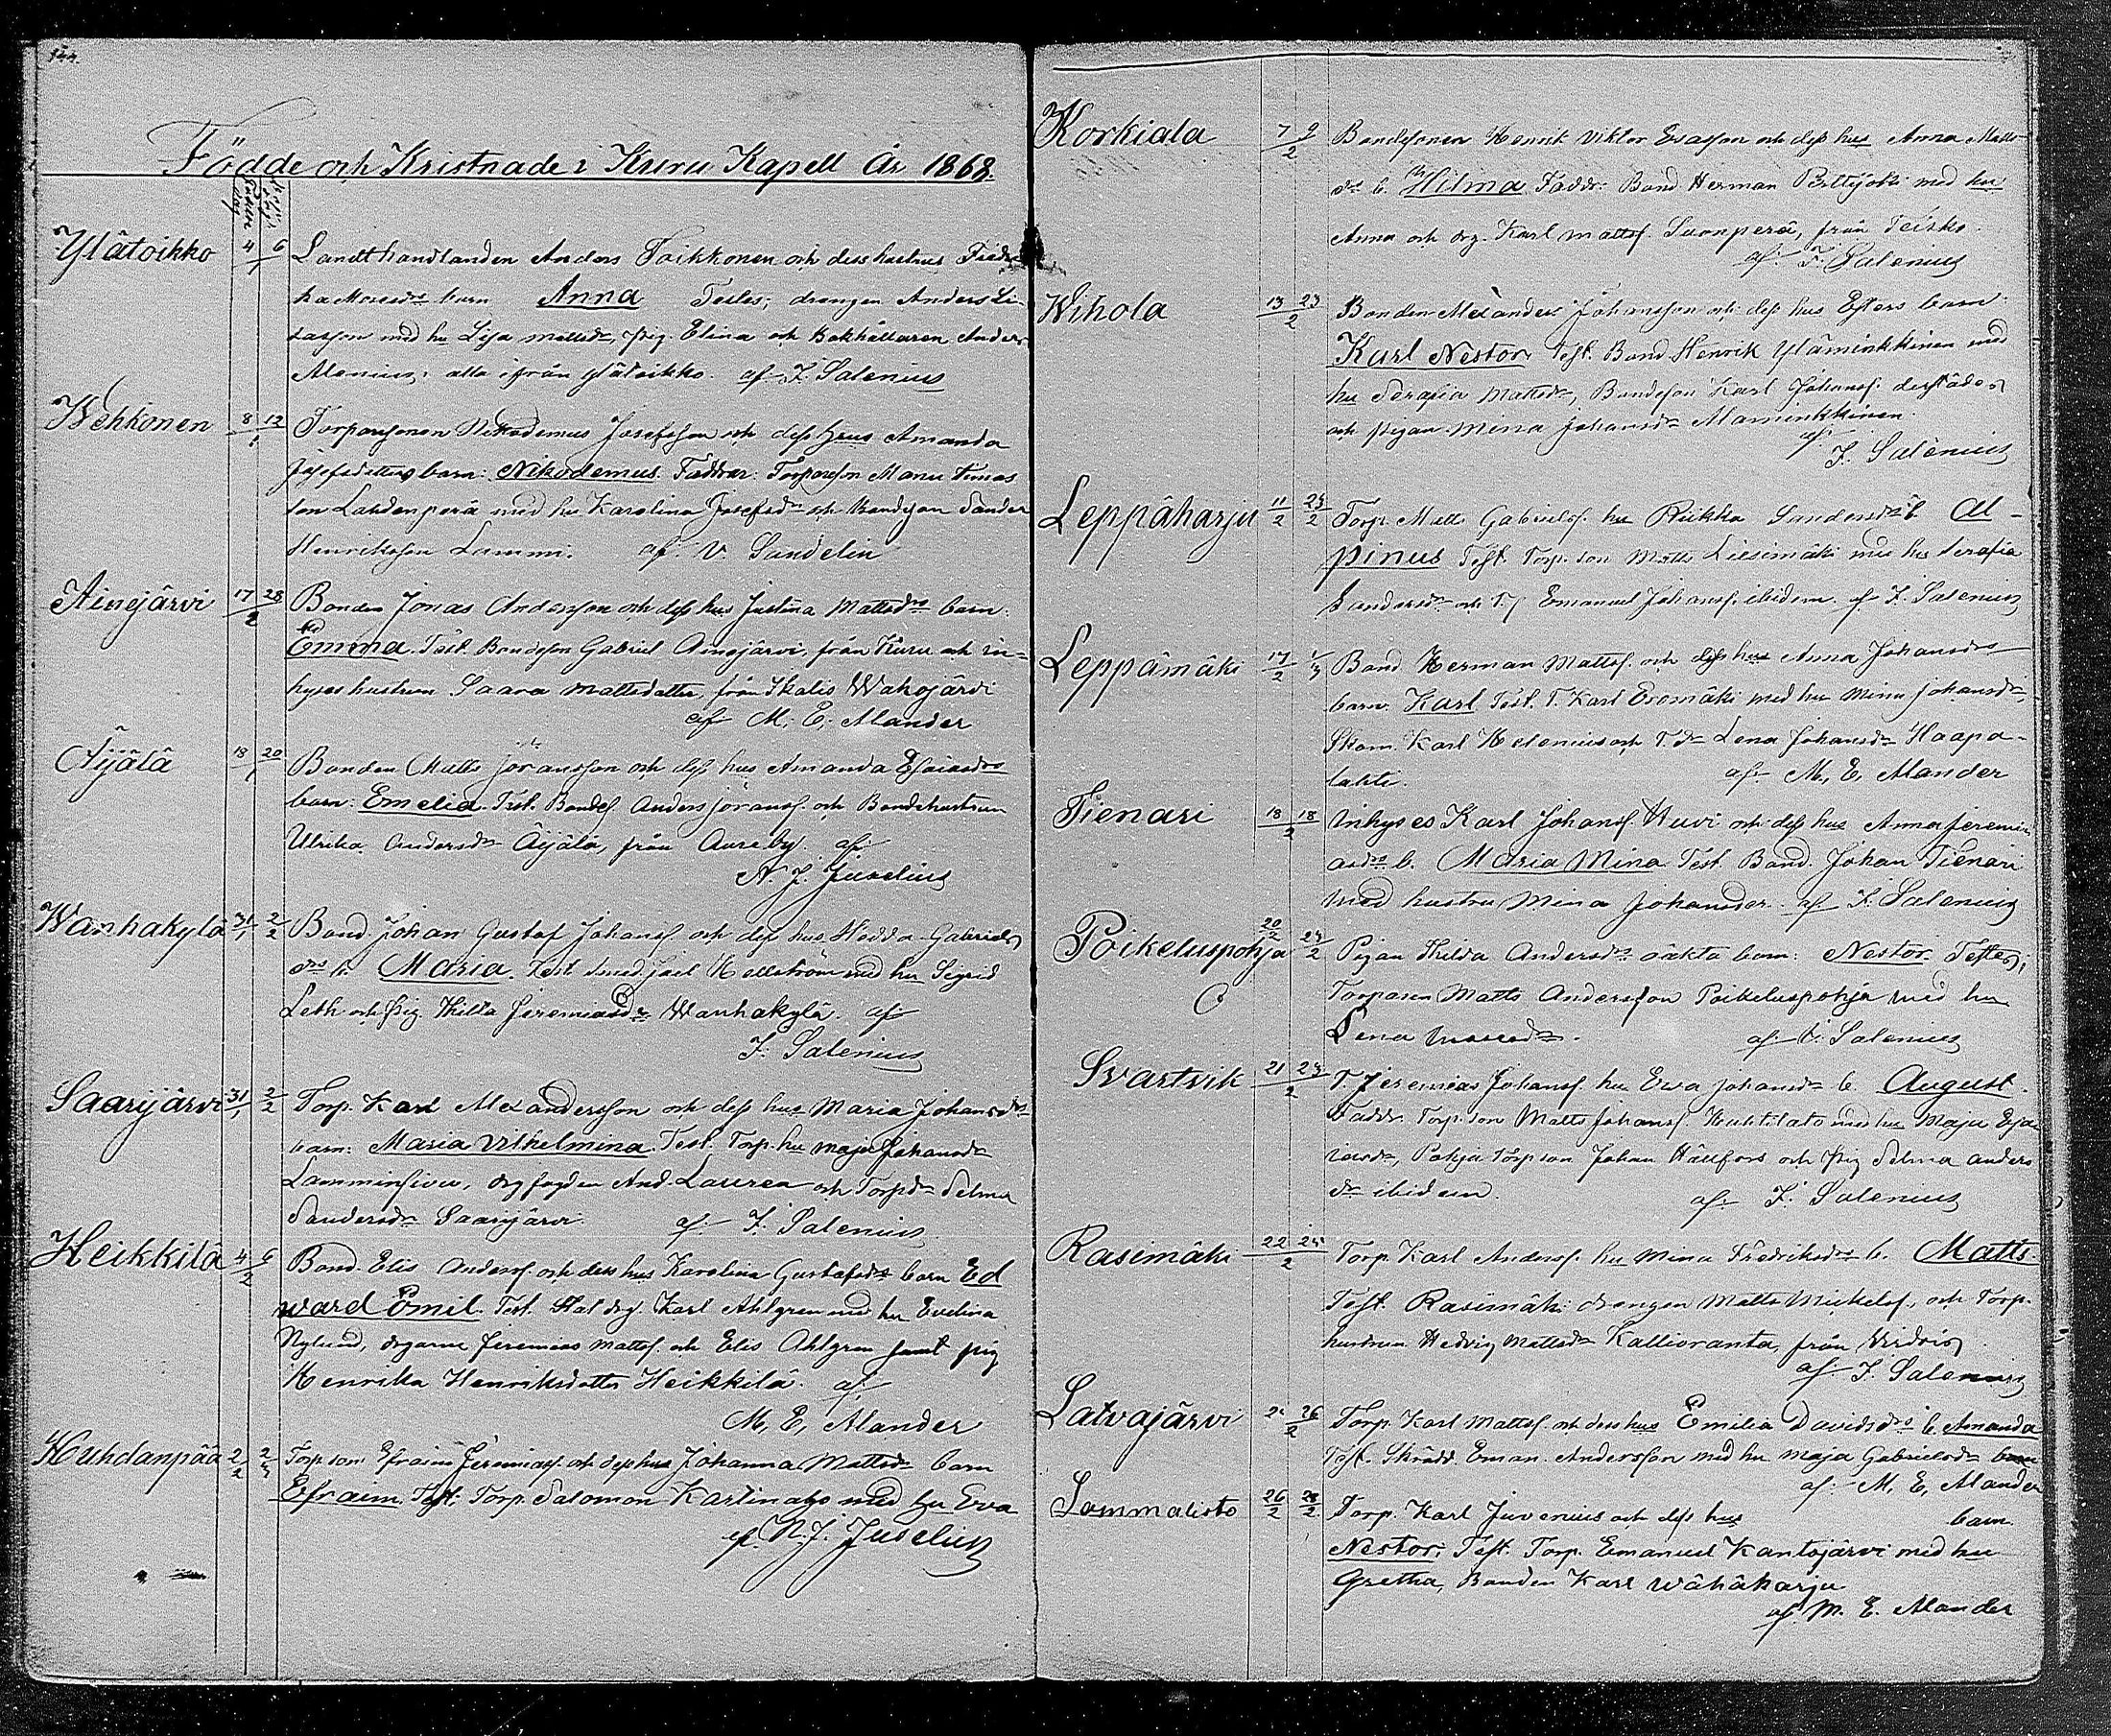 144.
Födde och Kristnade i Kuru Kapell År 1868.
Ylätoikko 4 6/1 Landthandlanden Anders Toikkonen och dess hustrus Fredri
ka Mosesdrs barn Anna Testes; drengen Anders Li-
sasson med hu Lisa Mattsdr, pig. Elina och Bokhållaren Anders
Alenius; alla ifrån Ylätoikko. af F. Salenius
Wehkonen 8 12/1 Torparesonen Nikodemus Josefsson och dess hus Amanda
Josefsdotters barn: Nikodemus. Faddrar: Torpareson Manu Tomas
son Lahdenperä med hu Karolina Josefsdr och Bondson Sander
Henriksson Lammi. af V. Sandelin
Ainejärvi 17 28/2 Bonden Jonas Andersson och dess hus Justina Mattsdrs barn:
Emma. Test. Bondeson Gabriel Ainejärvi, från Kuru och in-
hyses hustrun Saara Mattsdotter, från Ikalis Wahojärvi
af M. E. Alander
Äijälä 18 20/1 Bonden Matts Jöransson och dess hus Amanda Esaiasdrs
barn: Emelia. Test. Bondes. Anders Jöranss. och Bondehustrun
Ulrika Andersdr Äijälä, från Aureby. af
N. J. Juselius
Wanhakylä 31/1 2/2 Bond. Johan Gustaf Johanss och dess hus Hedda Gabriels
drs b. Maria. Test. Smed. Joel Hellström med hu Sigrid
Leth och pig. Hilda Jeremiasdr Wanhakylä. af
F. Salenius
Saarijärvi 31/1 2/2 Torp. Karl Alexandersson och dess hus Maria Johansdrs
barn: Maria Vilhelmina. Test. Torp. hu Maja Johansdr
Lamminsivu, drg fogden And. Lauren och Torpdr Selma
Sandersdr Saarijärvi. af F. Salenius
Heikkilä 4/2 6 Bond. Elis Anderss. och dess hus Karolina Gustafsdrs barn Ed
ward Emil. Test. Statdrg. Karl Ahlgren med hu Evelina
Nylund, drgarne Jeremias Mattss. och Elis Ahlgren samt pig
Henrika Henriksdotter Heikkilä. af
M. E. Alander
Huhdanpää 2/2 2/3 Torp son Efraim Jeremiass. och dess hus Johanna Mattsdr barn
Efraim. Test. Torp. Salomon Karlinaho med hu Eva
af N. J. Juselius
Korkiala 7 9/2 Bondesonen Henrik Viktor Esasson och dess hus Anna Matts
drs b. Hilma Faddr: Bond Herman Perttijoki med hu
Anna och drg. Karl Mattss. Suonperä, från Teisko.
af F. Salenius
Wihola 13 23/2 Bonden Alexander Johansson och dess hus Esters barn
Karl Nestor. Test. Bond Henrik Yläminkkinen med
hu Serafia Mattsdr, Bondeson Karl Johanss. derstädes
och pigan Mina Johansdr Alaminkkinen.
af
F. Salenius
Leppäharju 11/2 23/2 Torp. Matts Gabrielss. hu Rikka Sandersdrs b. Al-
pinus Test. Torp. son Matts Liesimäki med hu Serafia
Sandersdr och T. / Emanuel Johanss. ibidem. af F. Salenius
Leppämäki 17/2 1/3 Bond. Herman Mattss. och dess hus Anna Johansdrs
barn. Karl Test. T. Karl Eromäki med hu Mina Johansdr
Skom. Karl Helenius och T. dr Lena Johansdr Haapa-
lahti. af M. E. Alander
Tienari 18 18/2 Inhyses Karl Johanss. Huvi och dess hus Anna Jeremi
asdrs b. Maria Mina Test. Bond. Johan Tienari
med hustru Mina Johansder. af F. Salenius
Poikeluspohja 20/2 23/2 Pigan Hilda Andersdrs oäkta barn: Nestor. Testes;
Torparen Matts Andersson Poikeluspohja med hu
Lena Mosesdr. af F. Salenius
Svartvik 21 23/2 T. Jeremias Johanss. hu Eva Johansdr b. August.
Faddr. Torp. son Matts Johanss. Huhtilato med hu Maja Esa
iasdr, Pohja Torpson Johan Hällfors och pig Selma Anders
dr ibidem. af F. Salenius
Rasimäki 22 25/2 Torp. Karl Anderss. hu Mina Fredriksdrs b. Matts.
Test. Rasimäki drengen Matts Mickelss., och Torp.
hustrun Hedvig Mattsdr Kallioranta, från Virdois
af F. Salenius
Latvajärvi 26/2 Torp. Karl Mattss. och dess hus Emilia Davidsdrs b. Amanda
Test. Skrädd. Eman. Andersson med hu Maja Gabrielsdr
af M. E. Alander
Sammalisto 26/2 28/2 Torp. Karl Juvenius och dess hus barn.
Nestor. Test. Torp. Emanuel Kantojärvi med hu
Gretha, Bonden Karl Wähäharju
af M. E. Alander